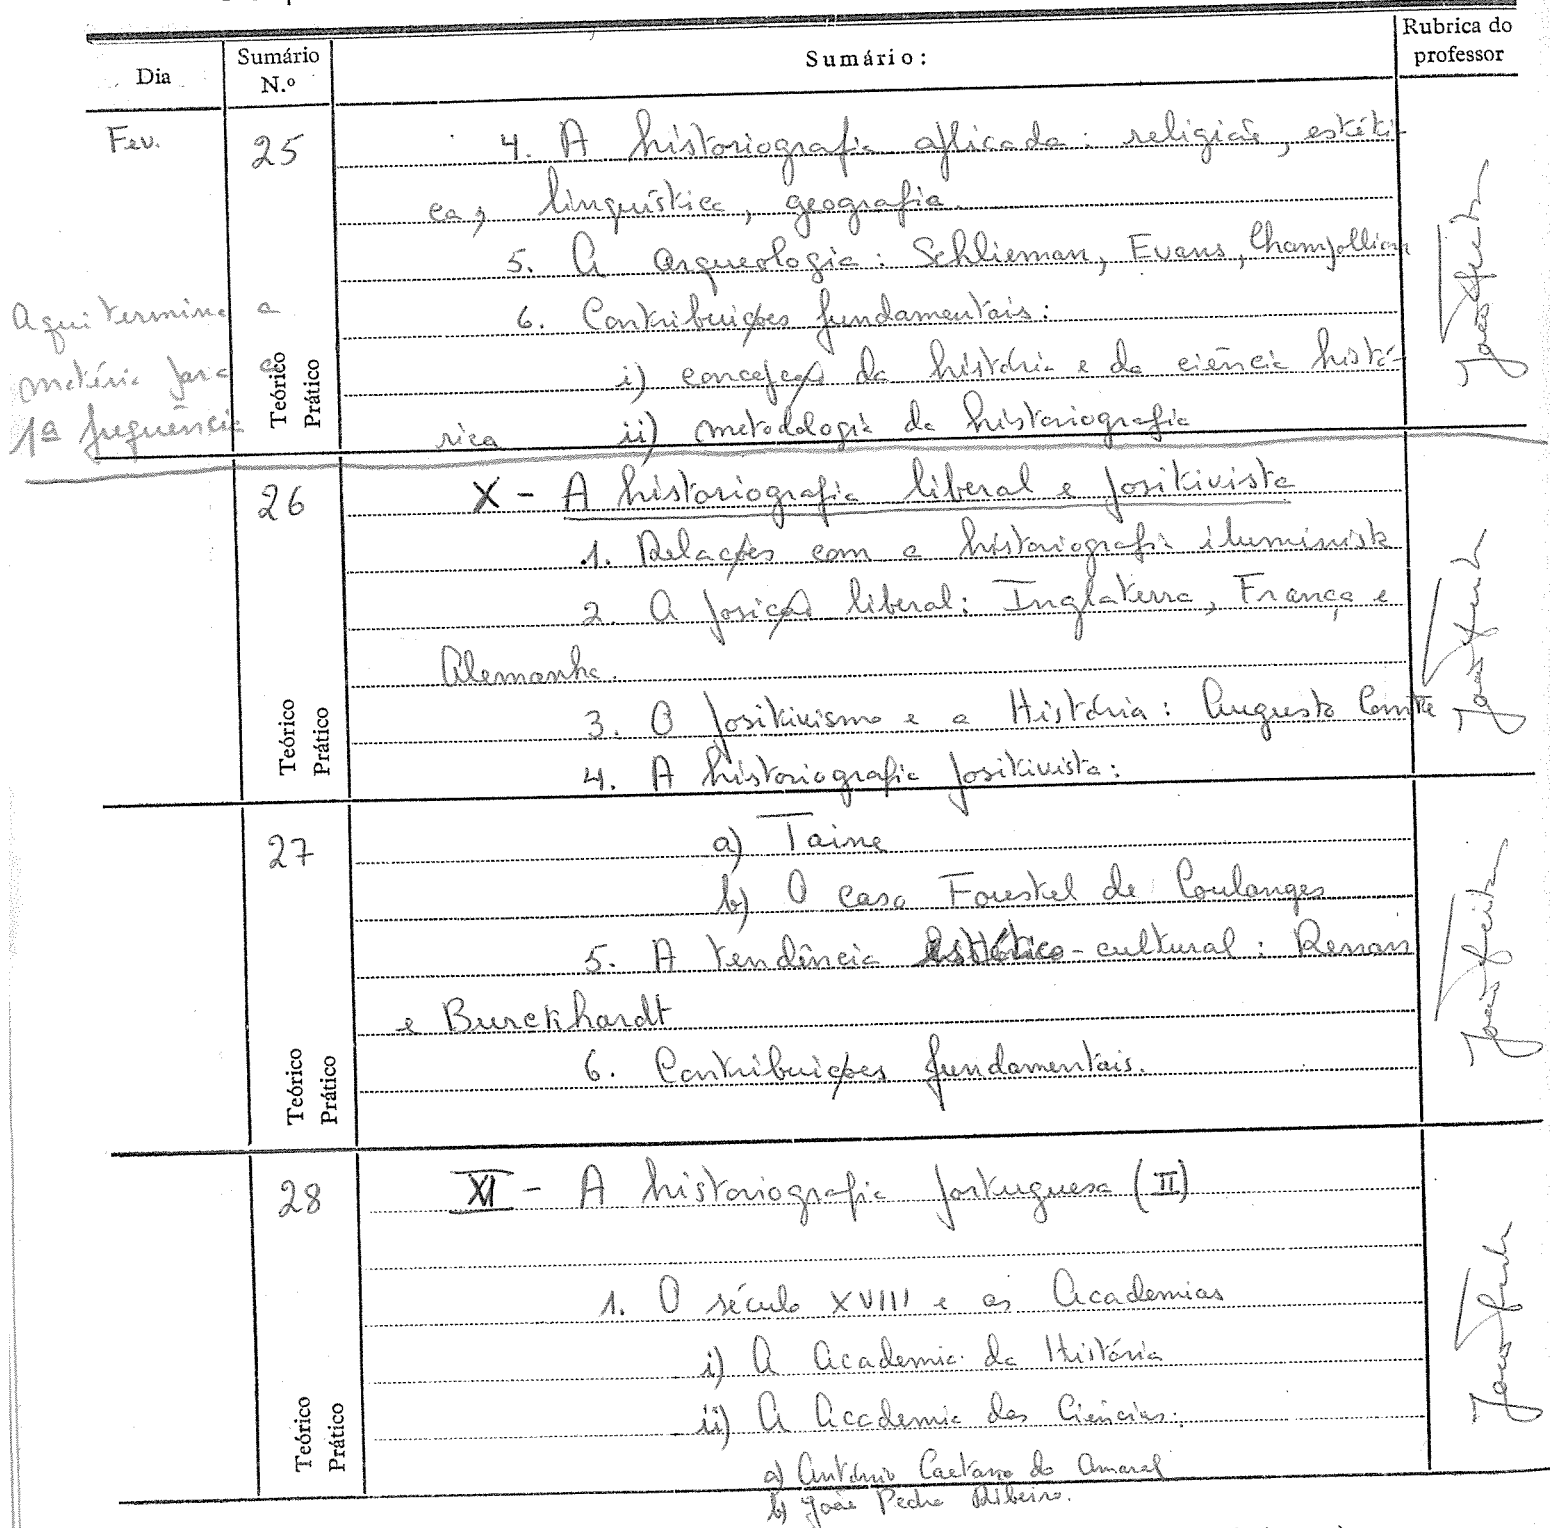 Dia
Sumário N.º
Sumário:
Rubrica do professor
Fev.
25
4. A historiografia aplicada: religião, estéti-
ca, linguística, geografia.
5. A arqueologia: Schlieman, Evans, Champollion
6. Contribuições fundamentais:
i) concepção da história e da ciência histó-
rica ii) metodologia da historiografia
Teórico
Prático
Aqui termina a
matéria para a
1ª frequência
26
X - A historiografia liberal e positivista
1. Relações com a historiografia iluminista
2. A posição liberal: Inglaterra, França e
Alemanha.
3. O positivismo e a História: Augusto Comte
4. A historiografia positivista:
Teórico
Prático
27
a) Taine
b) O caso Foustel de Coulanges
5. A tendência estético-cultural: Renan
e Burckhardt
6. Contribuições fundamentais.
Teórico
Prático
28
XI - A historiografia portuguesa (II)
1. O século XVIII e as Academias
i) A Academia da História
ii) A Academia das Ciências:
a) António Caetano do Amaral
b) João Pedro Ribeiro.
Teórico
Prático